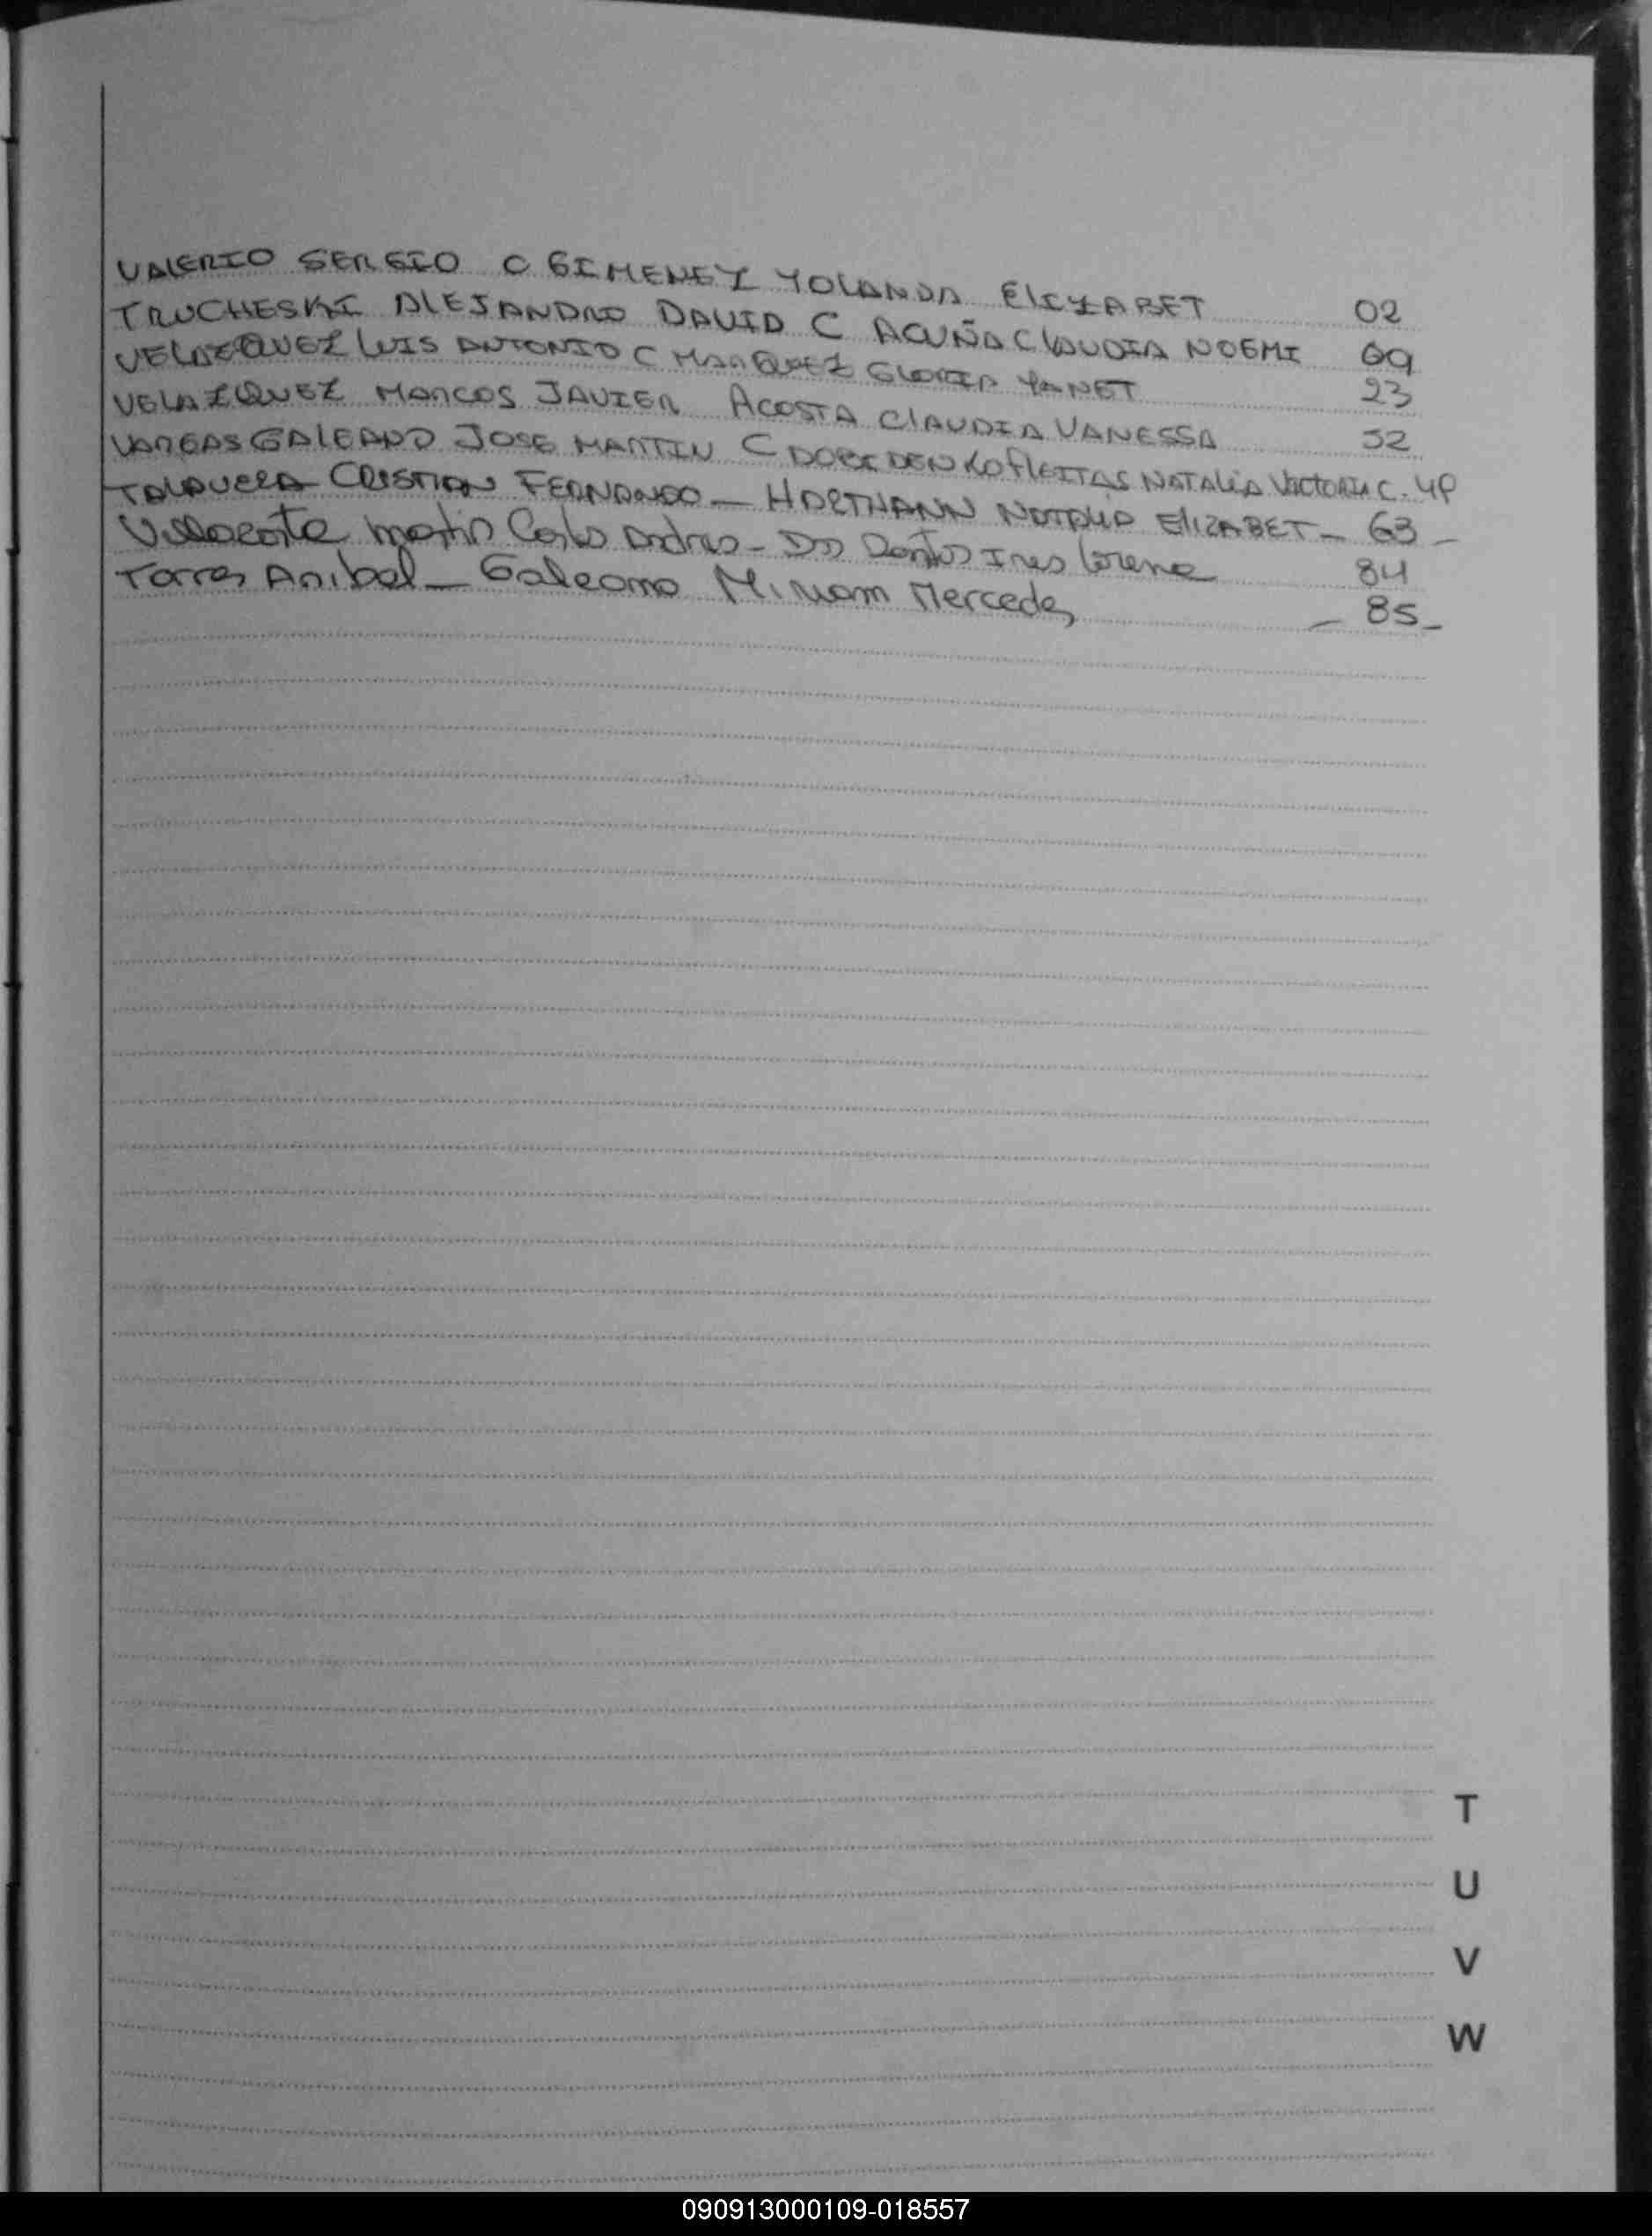 VALERIO SERGIO C GIMENEZ YOLANDA ELIZABET 02
TRUCHESKI ALEJANDRO DAVID C ACUÑA CLAUDIA NOEMI 09
VELAZQUEZ LUIS ANTONIO C MARQUEZ GLORIA YANET 23
VELAZQUEZ MARCOS JAVIER ACOSTA CLAUDIA VANESSA 32
VARGAS GALEANO JOSE MARTIN C FLEITAS NATALIA VICTORIA C.
TALAVERA CRISTIAN FERNANDO — HARTMANN NATALIA ELIZABET – 63 –
Martin Carlos Andres – Dos Santos Ines Lorena 84
Torres Anibal – Galeano Miriam Mercedes – 85 –
T
U
V
W
090913000109-018557